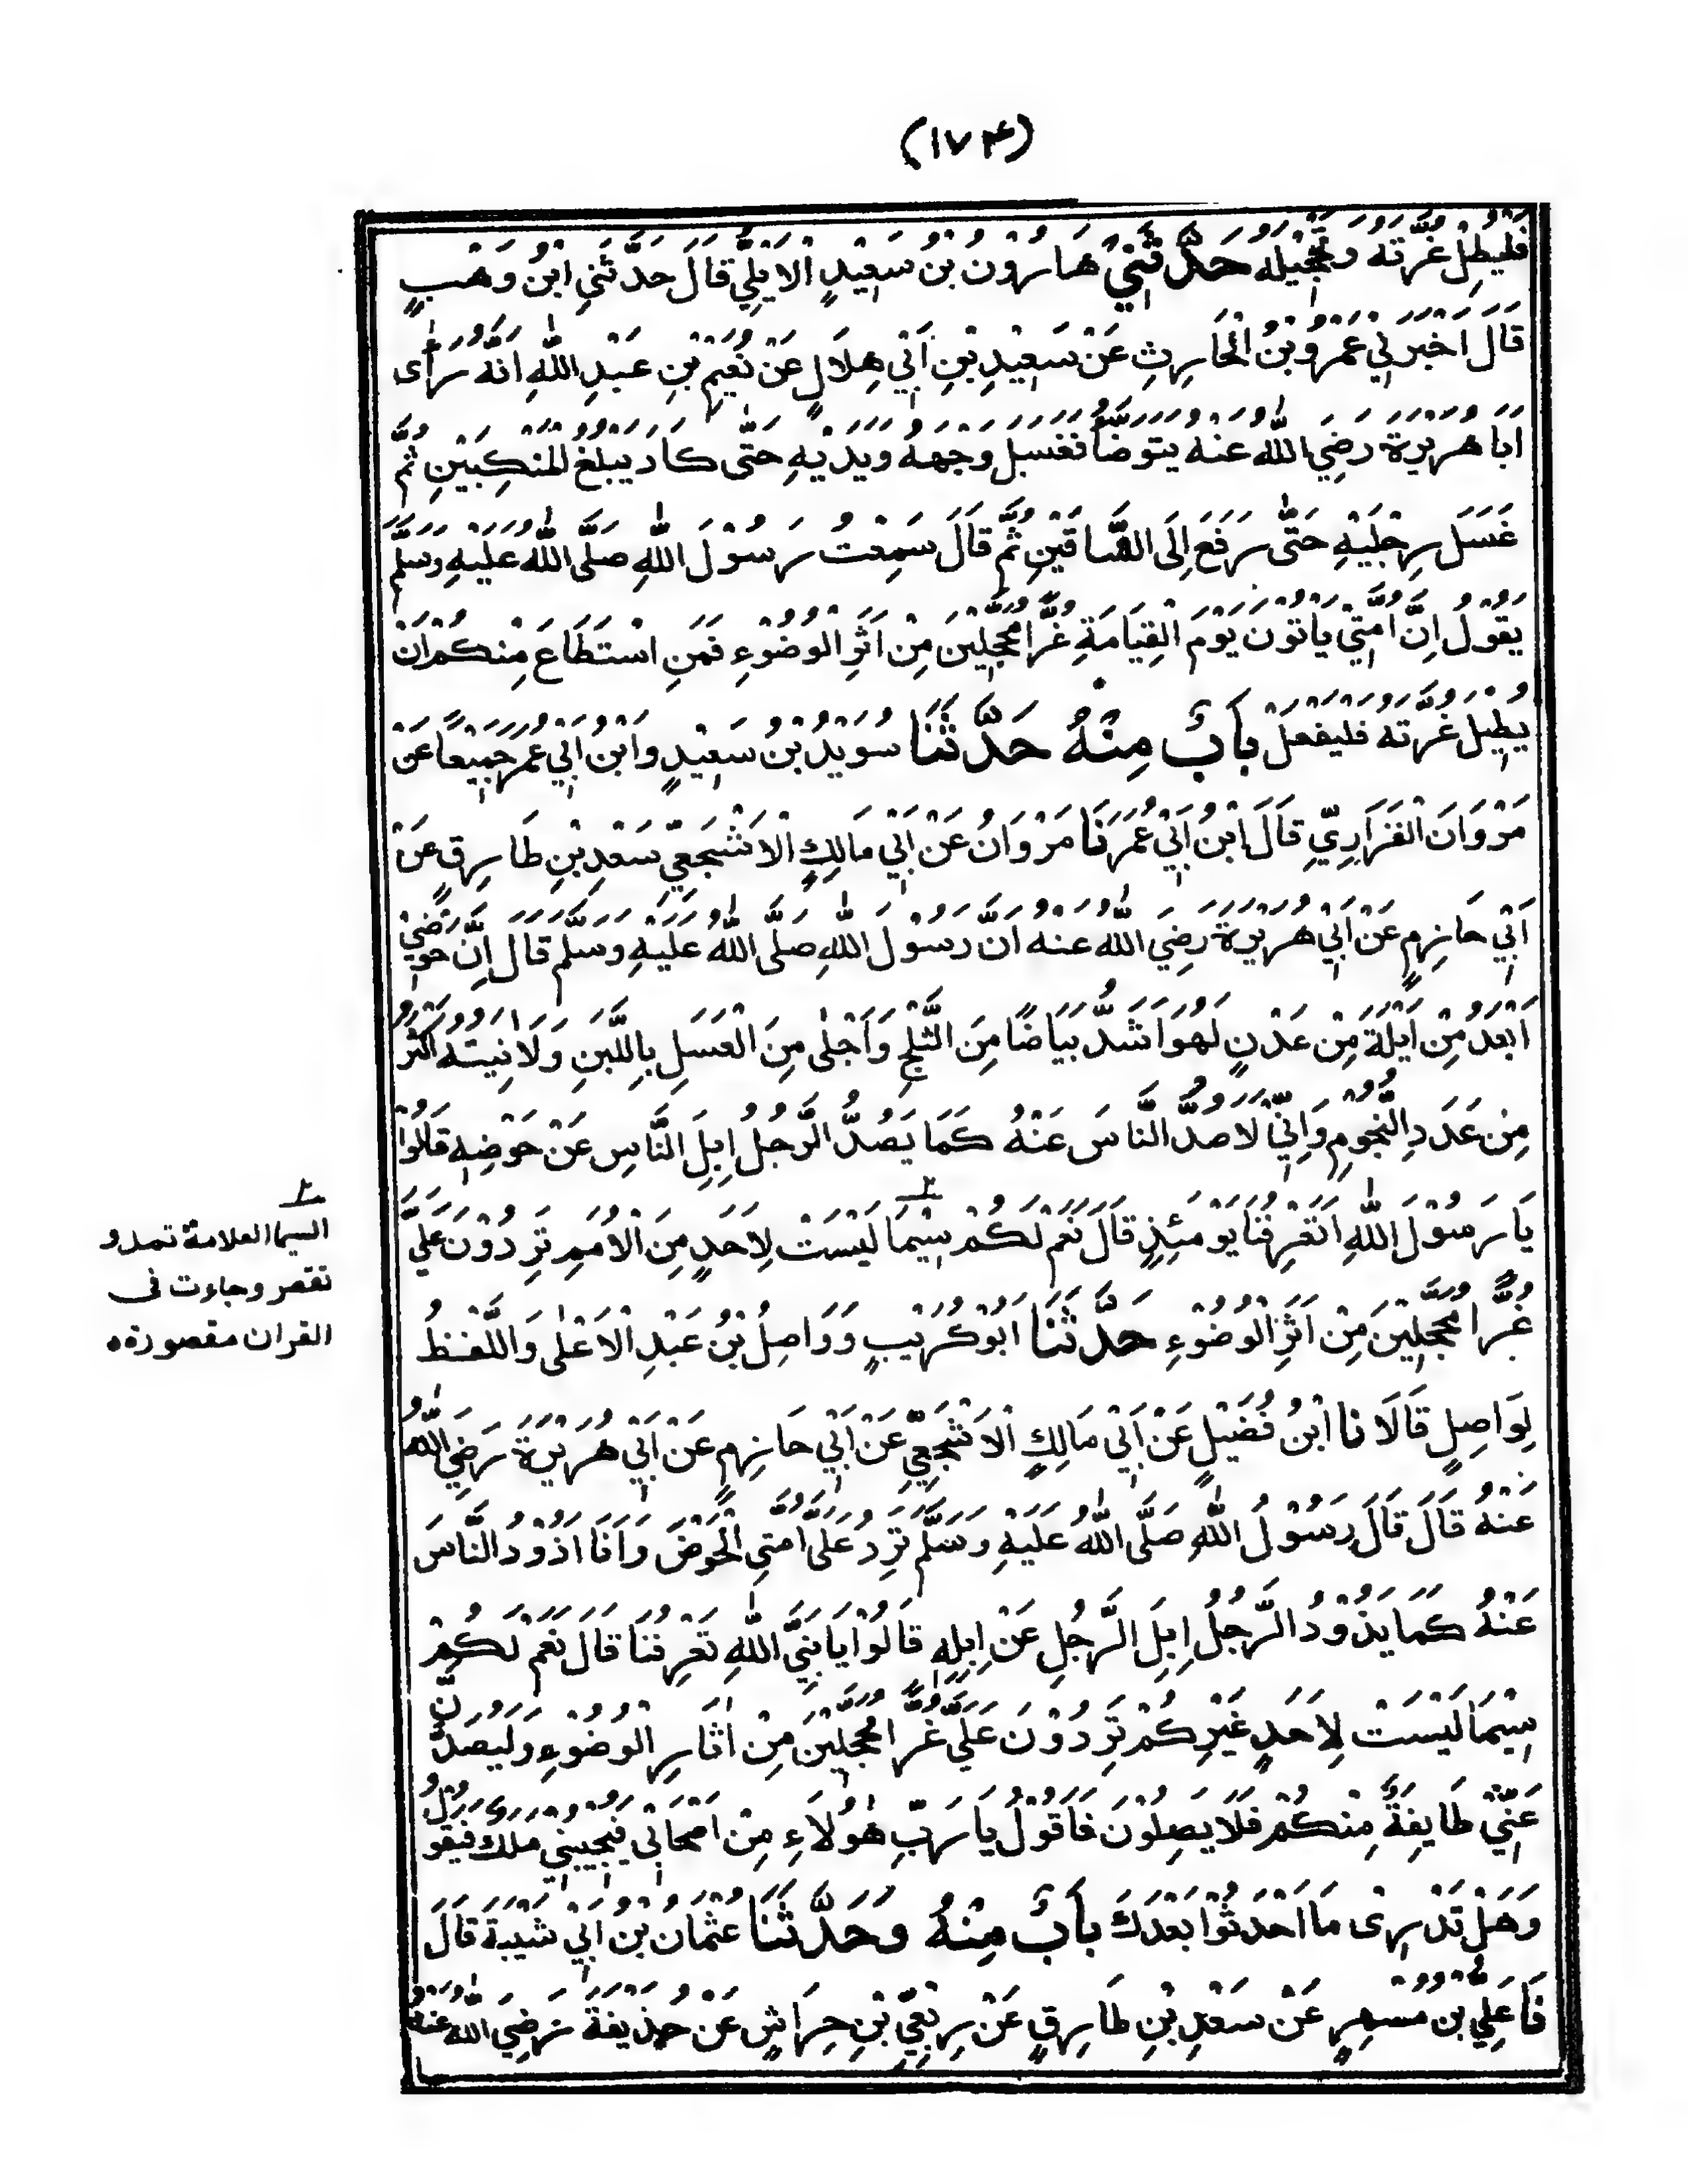 (۱۷۴)
فَلْيُطِلْ غُرَّتَهُ وَتَحْجِيْلَهُ حَدَّثَنِيْ هَارُوْنُ بْنُ سَعِيْدٍ الْاَيْلِيُّ قَالَ حَدَّثَنِي ابْنُ وَهْبٍ
قَالَ اَخْبَرَنِيْ عَمْرُو بْنُ الْحَارِثِ عَنْ سَعِيْدِ بْنِ اَبِيْ هِلَالٍ عَنْ نُعَيْمِ بْنِ عَبْدِ اللّٰهِ اَنَّهُ رَاٰى
اَبَا هُرَيْرَةَ رَضِيَ اللّٰهُ عَنْهُ يَتَوَضَّأُ فَغَسَلَ وَجْهَهُ وَيَدَيْهِ حَتّٰى كَادَ يَبْلُغُ الْمَنْكِبَيْنِ ثُمَّ
غَسَلَ رِجْلَيْهِ حَتّٰى رَفَعَ اِلَى السَّاقَيْنِ ثُمَّ قَالَ سَمِعْتُ رَسُوْلَ اللّٰهِ صَلَّى اللّٰهُ عَلَيْهِ وَسَلَّمَ
يَقُوْلُ اِنَّ اُمَّتِيْ يَاتُوْنَ يَوْمَ الْقِيَامَةِ غُرًّا مُحَجَّلِيْنَ مِنْ اَثَرِ الْوُضُوْءِ فَمَنِ اسْتَطَاعَ مِنْكُمْ اَنْ
يُطِيْلَ غُرَّتَهُ فَلْيَفْعَلْ بَابٌ مِنْهُ حَدَّثَنَا سُوَيْدُ بْنُ سَعِيْدٍ وَابْنُ اَبِيْ عُمَرَ جَمِيْعًا عَنْ
مَرْوَانَ الْفَزَارِيِّ قَالَ ابْنُ اَبِيْ عُمَرَ نَا مَرْوَانُ عَنْ اَبِيْ مَالِكٍ الْاَشْجَعِيِّ سَعْدِ بْنِ طَارِقٍ عَنْ
اَبِيْ حَازِمٍ عَنْ اَبِيْ هُرَيْرَةَ رَضِيَ اللّٰهُ عَنْهُ اَنَّ رَسُوْلَ اللّٰهِ صَلَّى اللّٰهُ عَلَيْهِ وَسَلَّمَ قَالَ اِنَّ حَوْضِيْ
اَبْعَدُ مِنْ اَيْلَةَ مِنْ عَدْنٍ لَهُوَ اَشَدُّ بَيَاضًا مِنَ الثَّلْجِ وَاَحْلٰى مِنَ الْعَسَلِ بِاللَّبَنِ وَلَاٰنِيَتُهُ اَكْثَرُ
مِنْ عَدَدِ النُّجُوْمِ وَاِنِّيْ لَاَصُدُّ النَّاسَ عَنْهُ كَمَا يَصُدُّ الرَّجُلُ اِبِلَ النَّاسِ عَنْ حَوْضِهِ قَالُوْا
يَا رَسُوْلَ اللّٰهِ اَتَعْرِفُنَا يَوْمَئِذٍ قَالَ نَعَمْ لَكُمْ سِيْمَا لَيْسَتْ لِاَحَدٍ مِنَ الْاُمَمِ تَرِدُوْنَ عَلَيَّ
غُرًّا مُحَجَّلِيْنَ مِنْ اَثَرِ الْوُضُوْءِ حَدَّثَنَا اَبُوْ كُرَيْبٍ وَوَاصِلُ بْنُ عَبْدِ الْاَعْلٰى وَاللَّفْظُ
لِوَاصِلٍ قَالَا نَا ابْنُ فُضَيْلٍ عَنْ اَبِيْ مَالِكٍ الْاَشْجَعِيِّ عَنْ اَبِيْ حَازِمٍ عَنْ اَبِيْ هُرَيْرَةَ رَضِيَ اللّٰهُ
عَنْهُ قَالَ قَالَ رَسُوْلُ اللّٰهِ صَلَّى اللّٰهُ عَلَيْهِ وَسَلَّمَ تَرِدُ عَلَيَّ اُمَّتِي الْحَوْضَ وَاَنَا اَذُوْدُ النَّاسَ
عَنْهُ كَمَا يَذُوْدُ الرَّجُلُ اِبِلَ الرَّجُلِ عَنْ اِبِلِهِ قَالُوْا يَا نَبِيَّ اللّٰهِ تَعْرِفُنَا قَالَ نَعَمْ لَكُمْ
سِيْمَا لَيْسَتْ لِاَحَدٍ غَيْرِكُمْ تَرِدُوْنَ عَلَيَّ غُرًّا مُحَجَّلِيْنَ مِنْ اٰثَارِ الْوُضُوْءِ وَلَيُصَدَّنَّ
عَنِّيْ طَايِفَةٌ مِنْكُمْ فَلَا يَصِلُوْنَ فَاَقُوْلُ يَا رَبِّ هٰؤُلَاءِ مِنْ اَصْحَابِيْ فَيُجِيْبُنِيْ مَلَكٌ فَيَقُوْلُ
وَهَلْ تَدْرِيْ مَا اَحْدَثُوْا بَعْدَكَ بَابٌ مِنْهُ وَحَدَّثَنَا عُثْمَانُ بْنُ اَبِيْ شَيْبَةَ قَالَ
نَا عَلِيُّ بْنُ مُسْهِرٍ عَنْ سَعْدِ بْنِ طَارِقٍ عَنْ رِبْعِيِّ بْنِ حِرَاشٍ عَنْ حُذَيْفَةَ رَضِيَ اللّٰهُ عَنْهُ
٢
السيما العلامة تمد و
تقصر وجاءت فى
القران مقصورة ٥